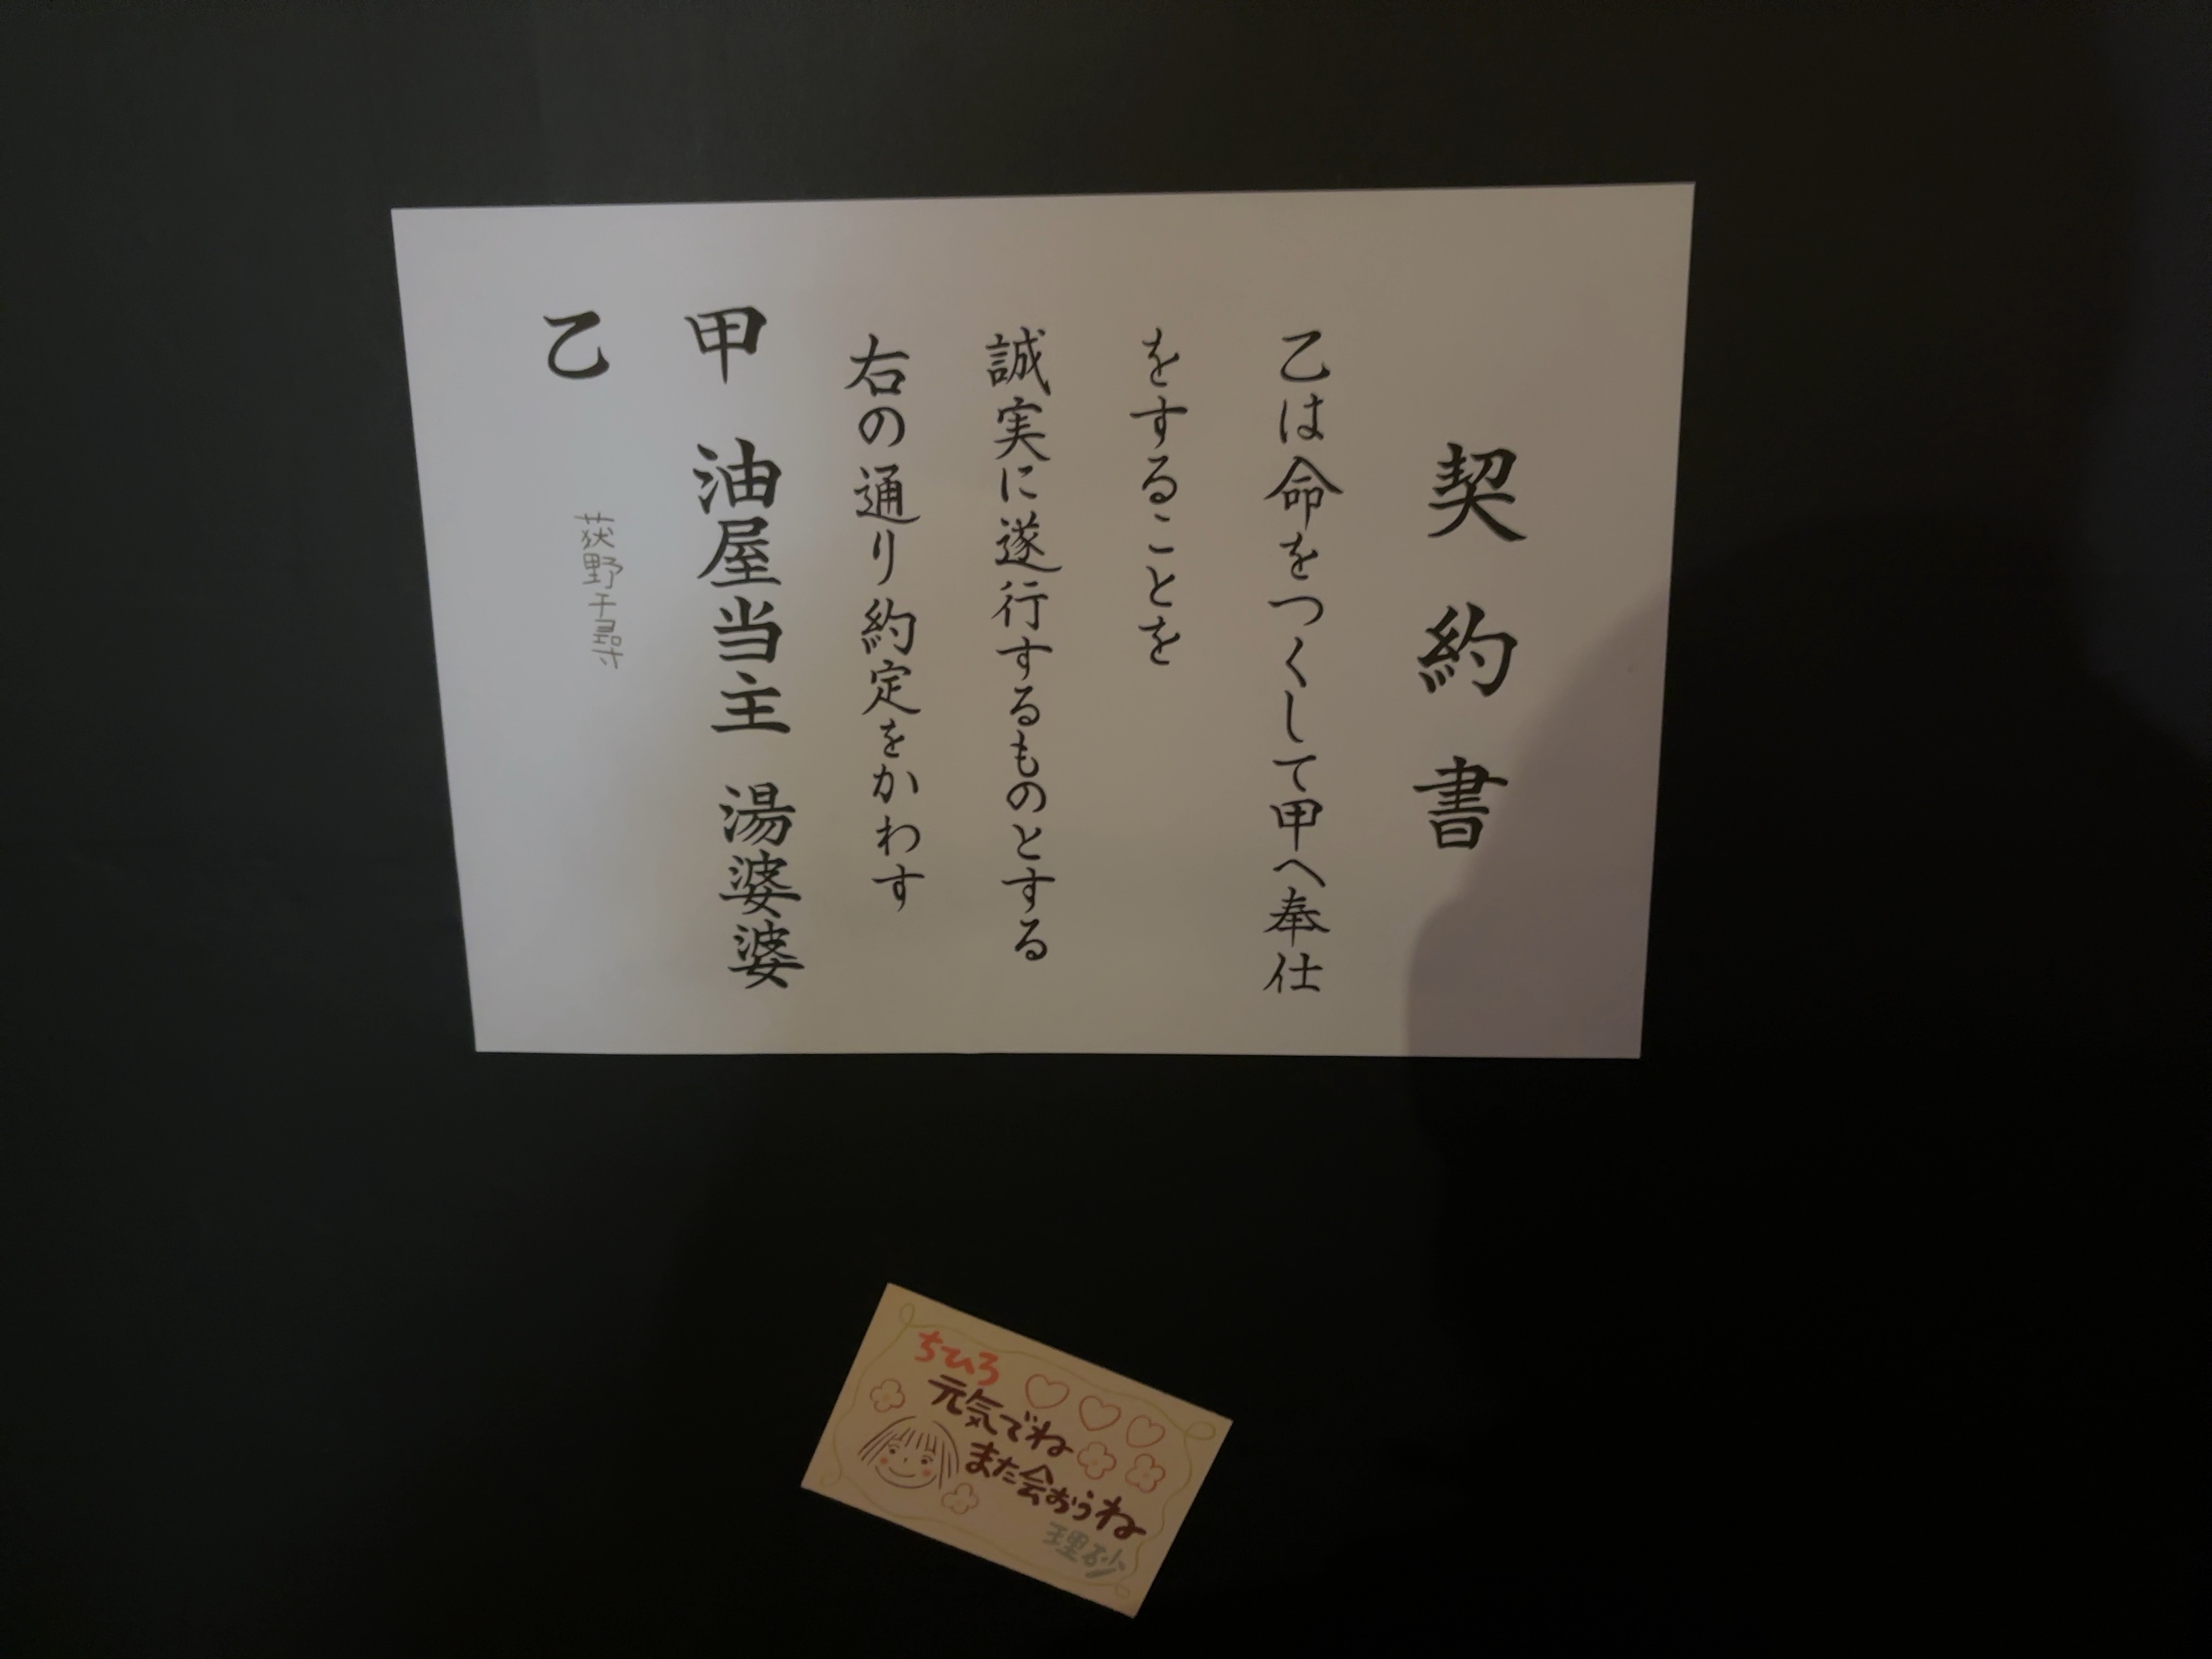 契約書
乙は命をつくして甲へ奉仕
をすることを
誠実に遂行するものとする
右の通り約定をかわす
甲 油屋当主 湯婆婆
乙 荻野千尋
ちひろ
元気でね
また会おうね
理砂